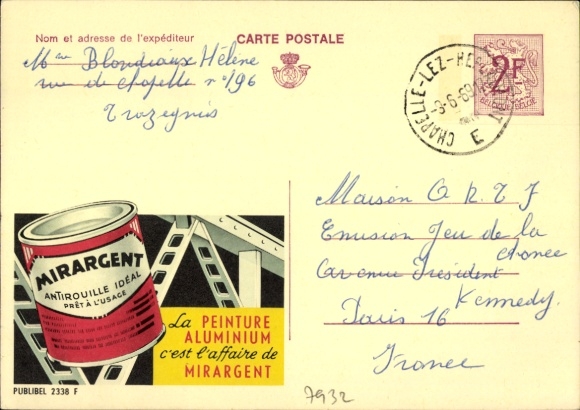 Nom et adresse de l'expéditeur
CARTE POSTALE
Mme Blondiaux Hélène
rue de chapelle n°196
Trazegnies
CHAPELLE-LEZ-HERLAIMONT
-3-6-69
E
2F
BELGIQUE-BELGIE
Maison O R T F
Emission Jeu de la
chance
avenue Président
Kennedy.
Paris 16
France
MIRARGENT
ANTIROUILLE IDÉAL
PRÊT À L'USAGE
La PEINTURE
ALUMINIUM
c'est l'affaire de
MIRARGENT
PUBLIBEL 2338 F
7932